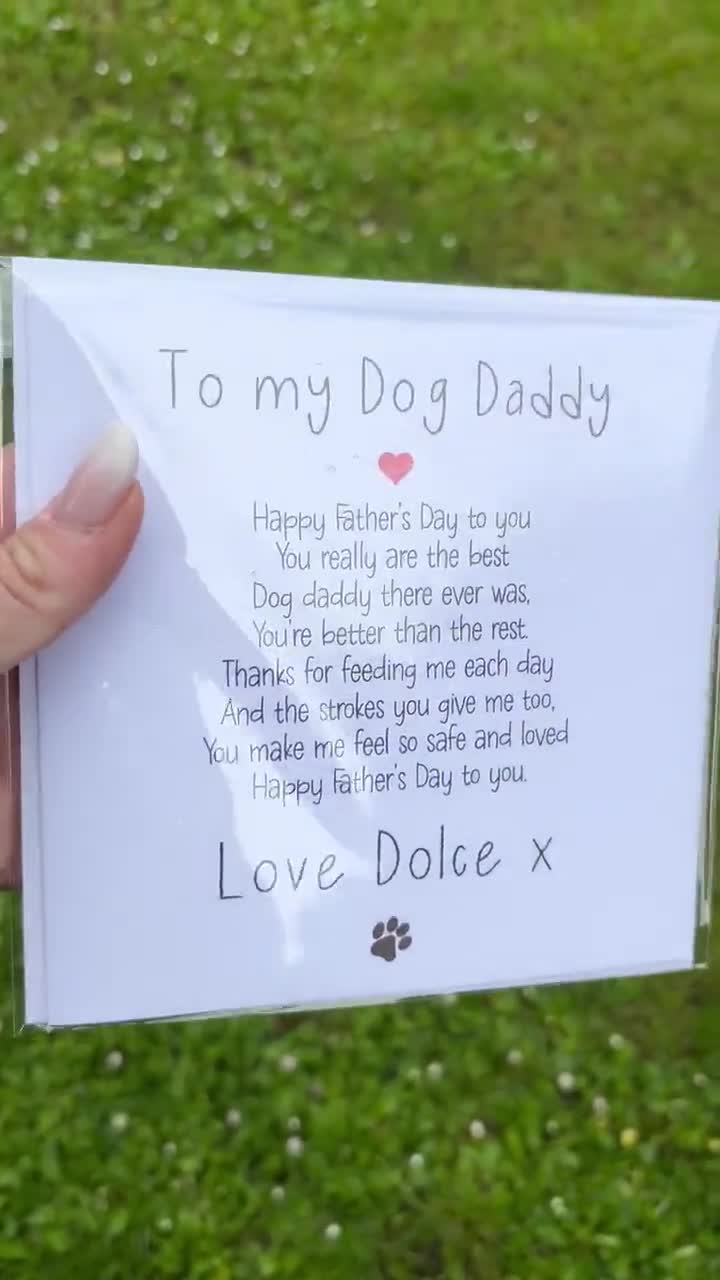 To my Dog Daddy
Happy Father's Day to you
You really are the best
Dog daddy there ever was,
You're better than the rest.
Thanks for feeding me each day
And the strokes you give me too,
You make me feel so safe and loved
Happy Father's Day to you.
Love Dolce x